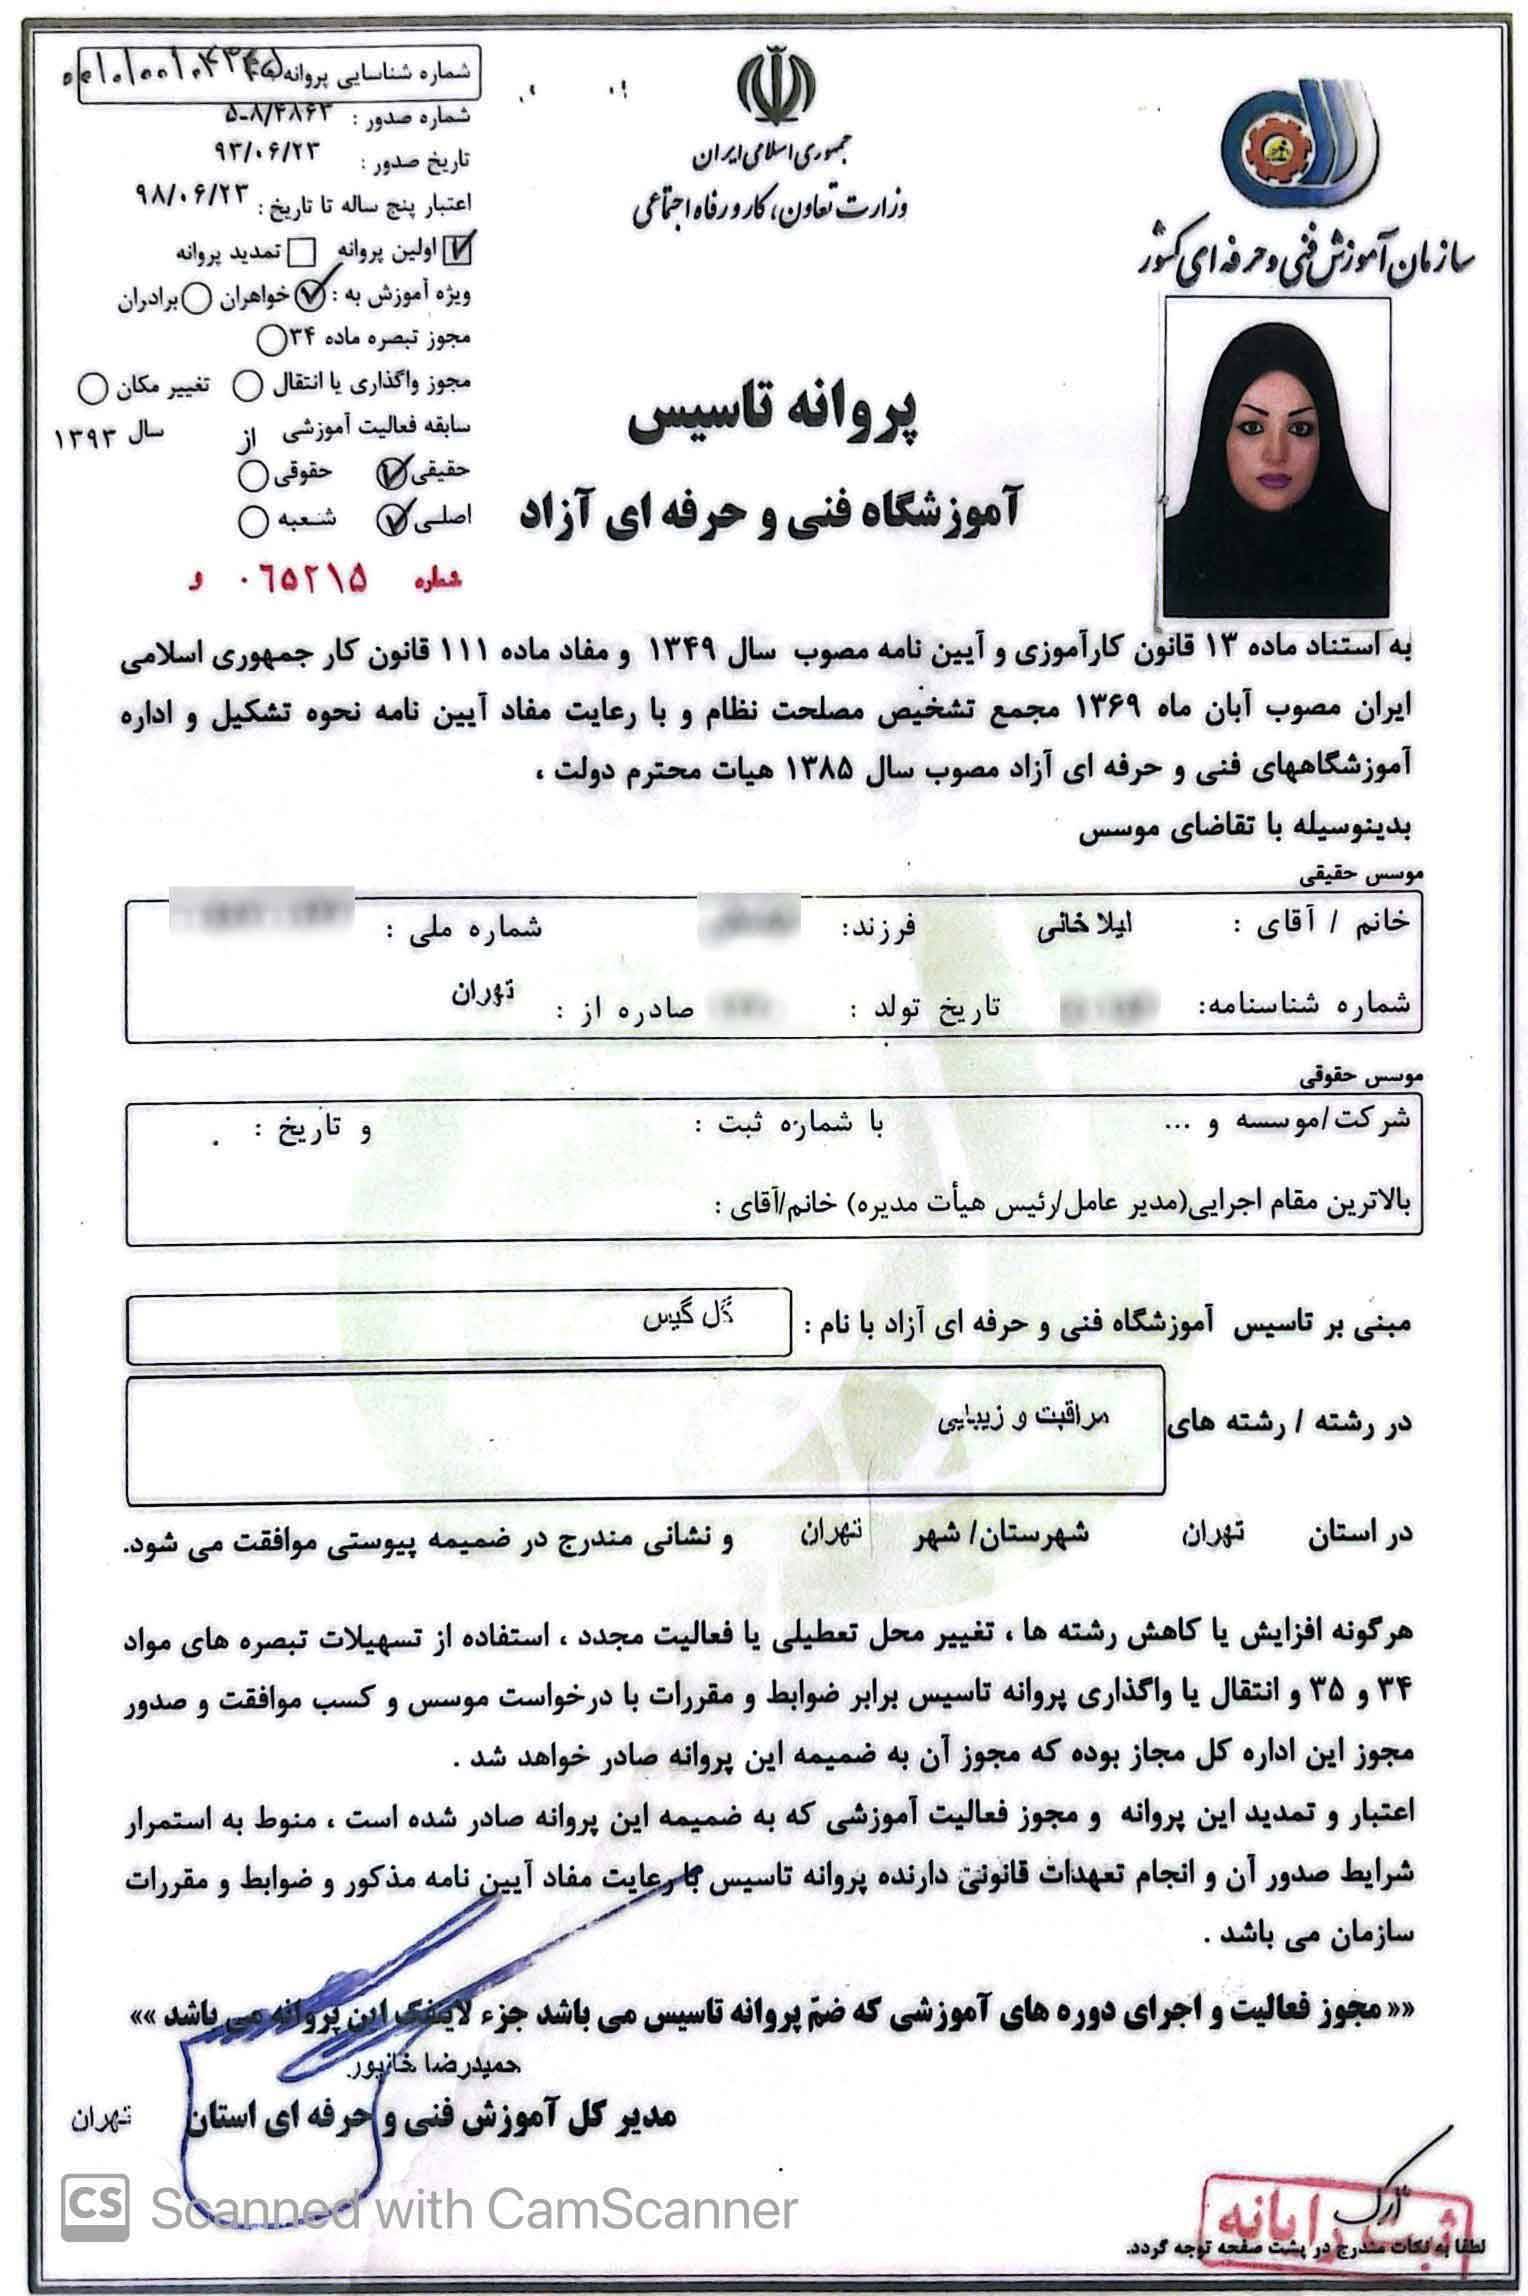 جمهوری اسلامی ایران
وزارت تعاون، کار و رفاه اجتماعی
سازمان آموزش فنی و حرفه ای کشور
شماره شناسایی پروانه
شماره صدور : ۵-۸/۴۸۶۳
تاریخ صدور : ۹۳/۰۶/۲۳
اعتبار پنج ساله تا تاریخ : ۹۸/۰۶/۲۳
اولین پروانه تمدید پروانه
ویژه آموزش به : خواهران برادران
مجوز تبصره ماده ۳۴
مجوز واگذاری یا انتقال تغییر مکان
سابقه فعالیت آموزشی از سال ۱۳۹۳
حقیقی حقوقی
اصلی شعبه
شماره ۰۶۵۲۱۵ و
پروانه تاسیس
آموزشگاه فنی و حرفه ای آزاد
به استناد ماده ۱۳ قانون کارآموزی و آیین نامه مصوب سال ۱۳۴۹ و مفاد ماده ۱۱۱ قانون کار جمهوری اسلامی
ایران مصوب آبان ماه ۱۳۶۹ مجمع تشخیص مصلحت نظام و با رعایت مفاد آیین نامه نحوه تشکیل و اداره
آموزشگاههای فنی و حرفه ای آزاد مصوب سال ۱۳۸۵ هیات محترم دولت ،
بدینوسیله با تقاضای موسس
موسس حقیقی
خانم / آقای : لیلا خانی فرزند: شماره ملی :
شماره شناسنامه: تاریخ تولد : صادره از : تهران
موسس حقوقی
شرکت/موسسه و ... با شماره ثبت : و تاریخ : .
بالاترین مقام اجرایی(مدیر عامل/رئیس هیأت مدیره) خانم/آقای :
مبنی بر تاسیس آموزشگاه فنی و حرفه ای آزاد با نام : گل گیس
در رشته / رشته های مراقبت و زیبایی
در استان تهران شهرستان/ شهر تهران و نشانی مندرج در ضمیمه پیوستی موافقت می شود.
هرگونه افزایش یا کاهش رشته ها ، تغییر محل تعطیلی یا فعالیت مجدد ، استفاده از تسهیلات تبصره های مواد
۳۴ و ۳۵ و انتقال یا واگذاری پروانه تاسیس برابر ضوابط و مقررات با درخواست موسس و کسب موافقت و صدور
مجوز این اداره کل مجاز بوده که مجوز آن به ضمیمه این پروانه صادر خواهد شد .
اعتبار و تمدید این پروانه و مجوز فعالیت آموزشی که به ضمیمه این پروانه صادر شده است ، منوط به استمرار
شرایط صدور آن و انجام تعهدات قانونی دارنده پروانه تاسیس با رعایت مفاد آیین نامه مذکور و ضوابط و مقررات
سازمان می باشد .
«« مجوز فعالیت و اجرای دوره های آموزشی که ضمّ پروانه تاسیس می باشد جزء لاینفک این پروانه می باشد »»
حمیدرضا خانپور
مدیر کل آموزش فنی و حرفه ای استان تهران
CS Scanned with CamScanner
ثبت رایانه
لطفا به نکات مندرج در پشت صفحه توجه گردد.